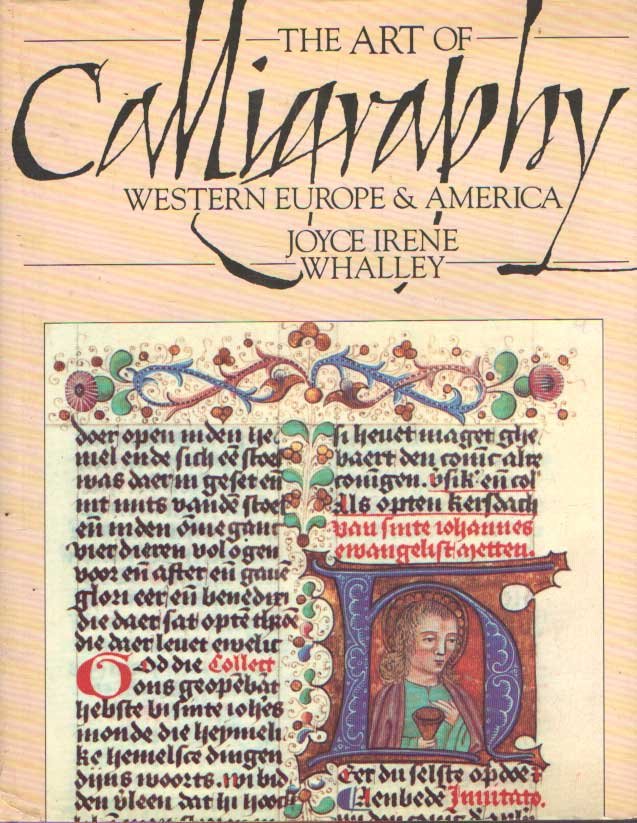 THE ART OF
Calligraphy
WESTERN EUROPE & AMERICA
JOYCE IRENE
WHALLEY
doer open in den he
mel ende sich eē stoel
was daer in geset en
int mits vandē stoel
eñ in den ōme gant
vier dieren vol ogen
voor eñ after eñ
glori eer eñ
die daer sat optē
die daer leuet ewelic
God die Collect
ons
hebste bi sinte iohēs
monde die heymeli
ke hemelsce dingen
dijns woorts. wi bid
den dat hi
si heuet maget ghe
baert den conīc alre
coningen. vsik eñ col
Als opten kersdach
van sinte iohannes
ewangelist metten.
Eer du selste opdoē
enbedē Inuitato.